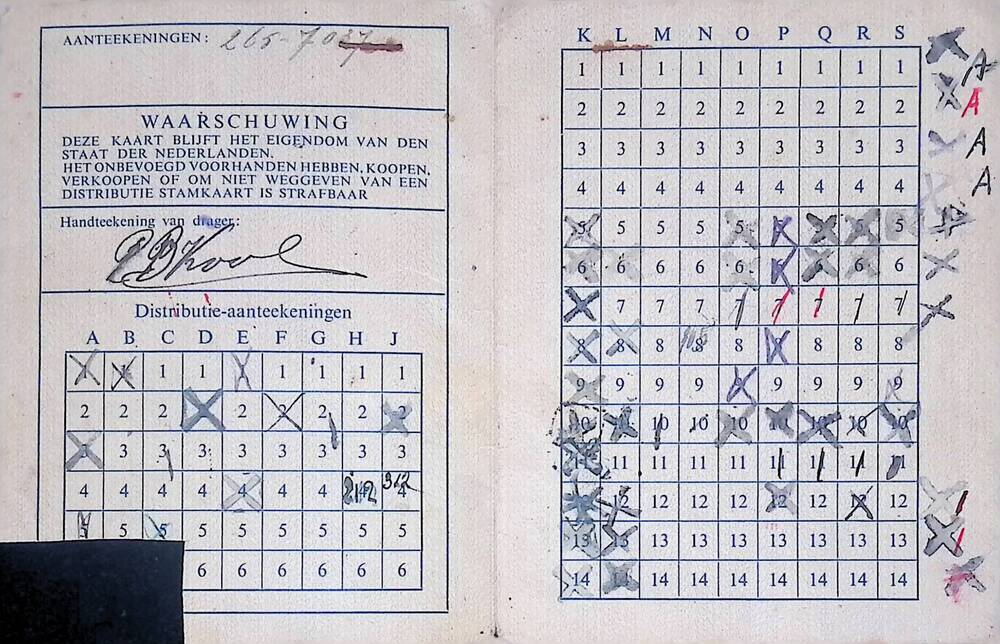 AANTEEKENINGEN: 265-7027
WAARSCHUWING
DEZE KAART BLIJFT HET EIGENDOM VAN DEN
STAAT DER NEDERLANDEN.
HET ONBEVOEGD VOORHANDEN HEBBEN, KOOPEN,
VERKOOPEN OF OM NIET WEGGEVEN VAN EEN
DISTRIBUTIE STAMKAART IS STRAFBAAR
Handteekening van drager:
Distributie-aanteekeningen
A B C D E F G H J
1 1 1 1 1 1 1
2 2 2 2 2 2 2 2
3 3 3 3 3 3 3 3
4 4 4 4 4 4 4 212 312 4
5 5 5 5 5 5 5 5
6 6 6 6 6 6
K L M N O P Q R S
1 1 1 1 1 1 1 1 1 A
2 2 2 2 2 2 2 2 2 A
3 3 3 3 3 3 3 3 3 A
4 4 4 4 4 4 4 4 4 A
5 5 5 5 5 5 5 5 5
6 6 6 6 6 6 6 6 6
7 7 7 7 7 7 7 7
8 8 8 8 8 8 8 8 8
9 9 9 9 9 9 9 9 9
10 10 10 10 10 10 10 10 10
11 11 11 11 11 11 11 11 11
12 12 12 12 12 12 12 12
13 13 13 13 13 13 13 13 13
14 14 14 14 14 14 14 14 14